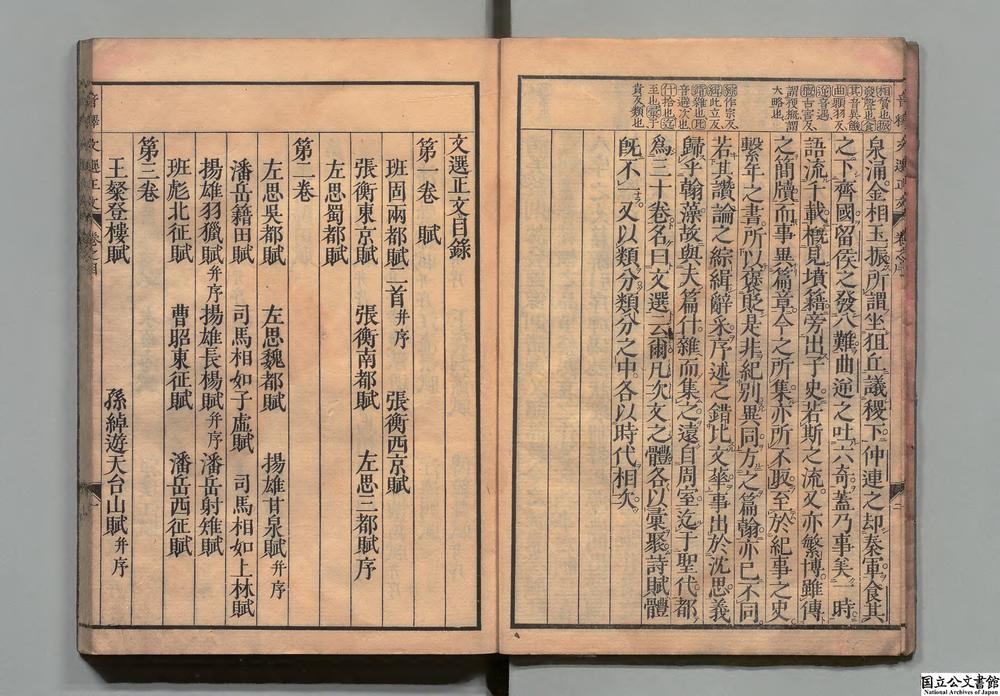 泉涌金相玉振所謂坐狙丘議稷下仲連之却秦軍食其
之下齊國留侯之發八難曲逆之吐六奇蓋乃事美一時
語流千載概見墳籍旁出子史若斯之流又亦繁博雖傳
之簡牘而事異篇章今之所集亦所不取至於紀事之史
繫年之書所以褒貶是非紀別異同方之篇翰亦已不同
若其讚論之綜緝辭采序述之錯比文華事出於沈思義
歸乎翰藻故與夫篇什雜而集之遠自周室迄于聖代都
爲三十卷名曰文選云爾凡次文之體各以彙聚詩賦體
既不一又以類分類分之中各以時代相次
文選正文目錄
第一卷 賦
班固兩都賦二首并序 張衡西京賦
張衡東京賦 張衡南都賦 左思三都賦序
左思蜀都賦
第二卷
左思吳都賦 左思魏都賦 揚雄甘泉賦并序
潘岳籍田賦 司馬相如子虛賦 司馬相如上林賦
揚雄羽獵賦并序 揚雄長楊賦并序 潘岳射雉賦
班彪北征賦 曹昭東征賦 潘岳西征賦
第三卷
王粲登樓賦 孫綽遊天台山賦并序
国立公文書館
National Archives of Japan